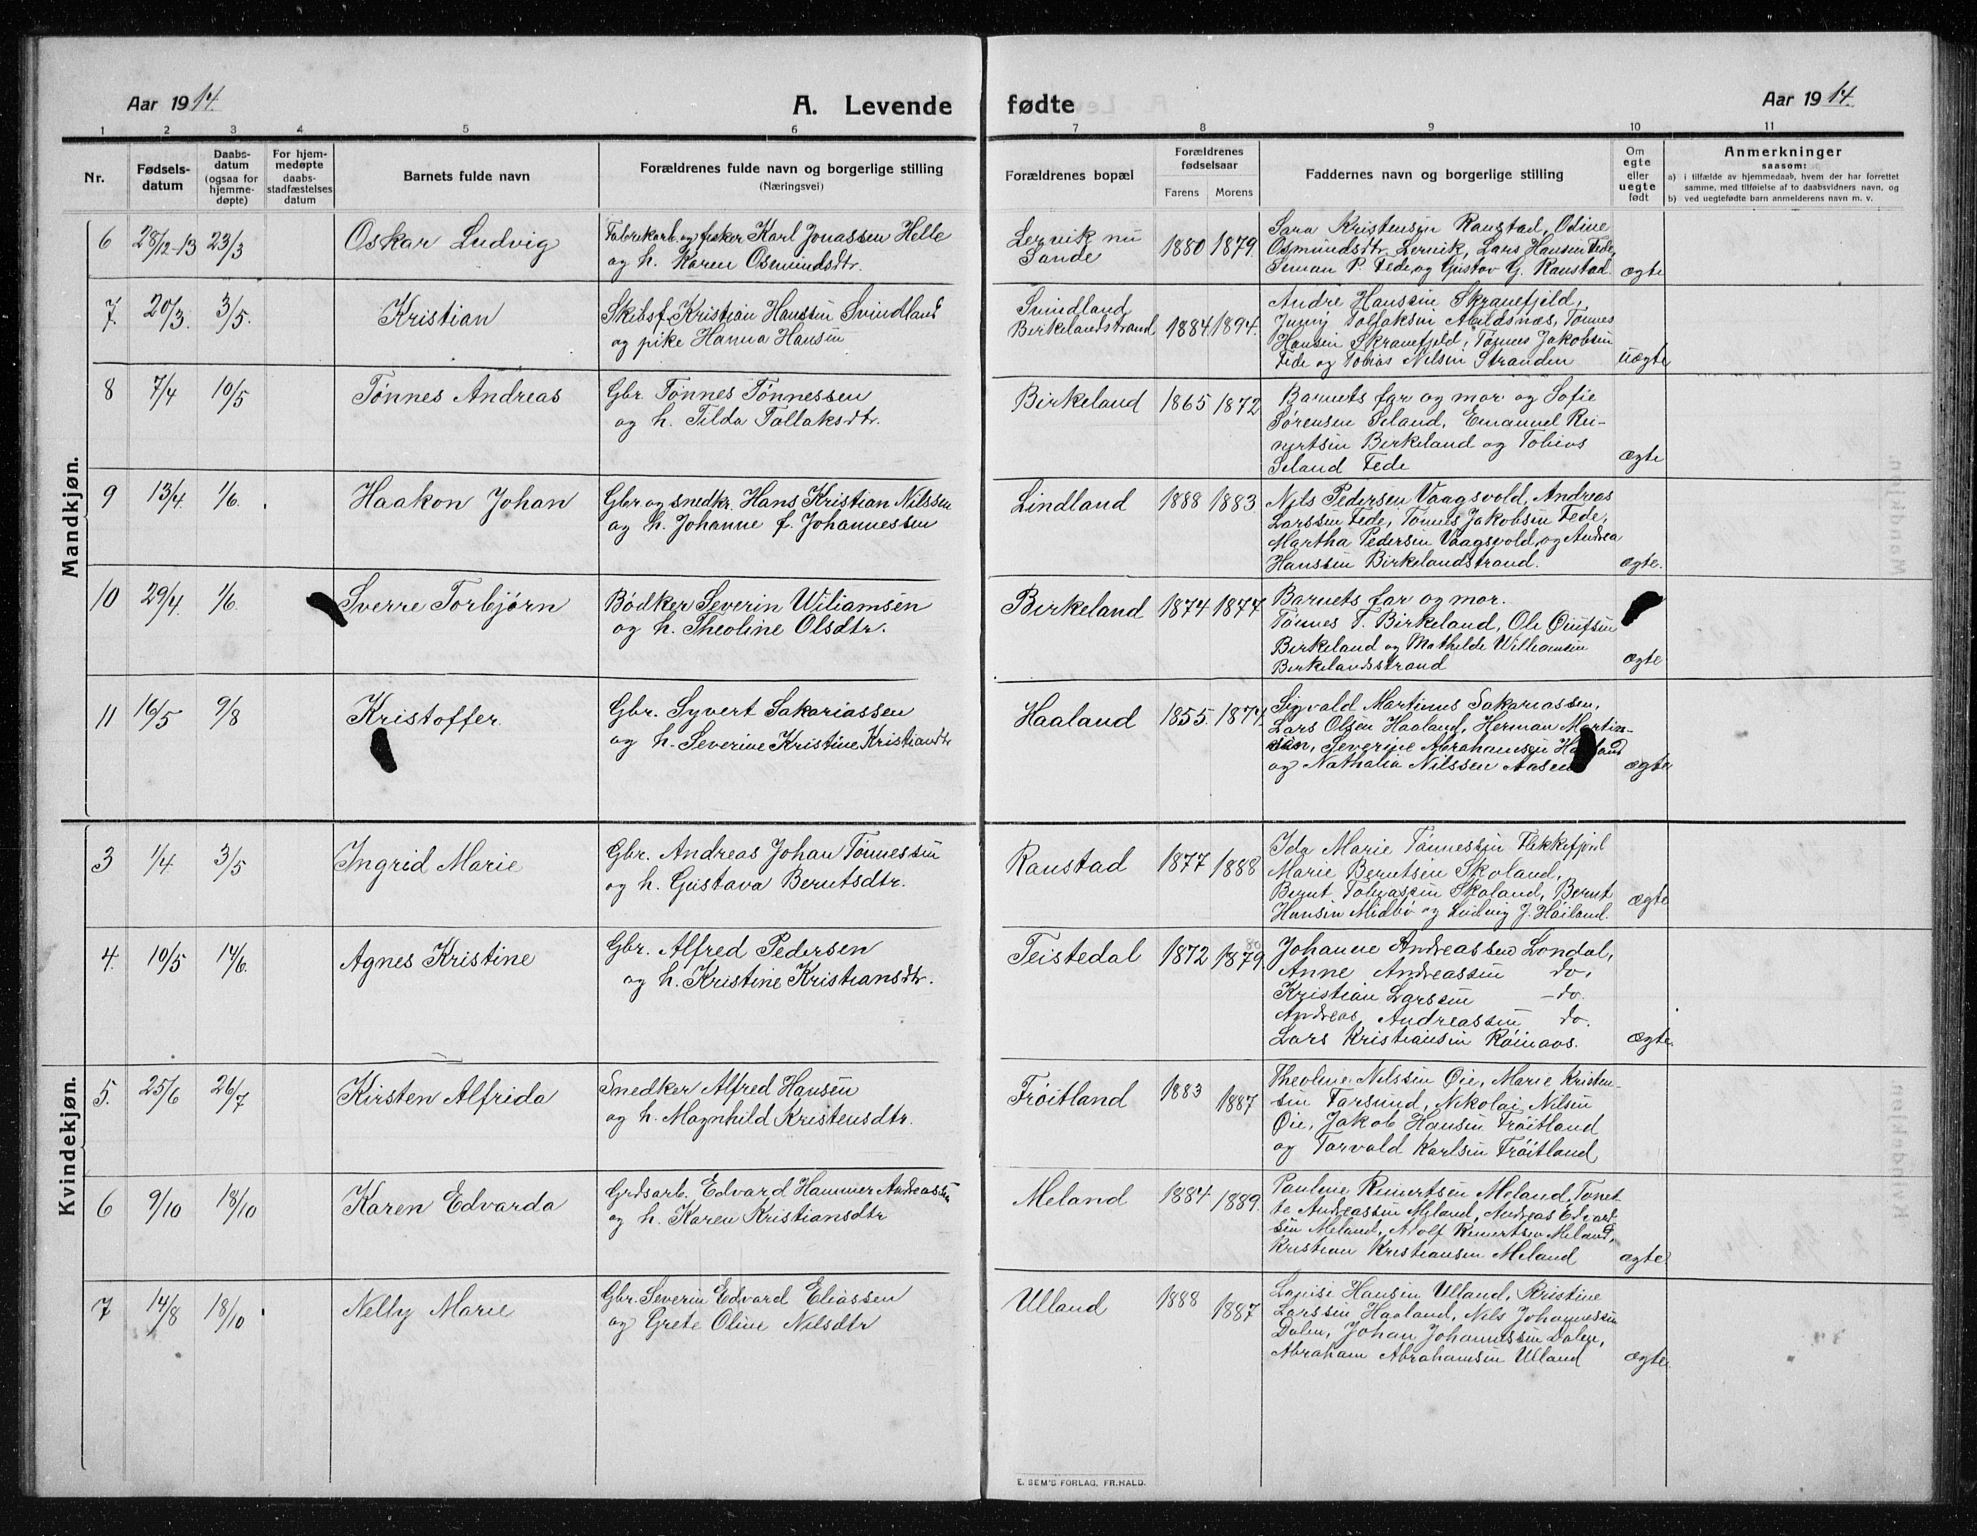 Aar 1914.
A. Levende
fødte
Aar 1914.
1 2 3 4 5 6 7 8 9 10 11
Nr.
Fødsels-
datum
Daabs-
datum
(ogsaa for
hjemme-
døpte)
For hjem-
medøpte
daabs-
stadfæstelses
datum
Barnets fulde navn
Forældrenes fulde navn og borgerlige stilling
(Næringsvei)
Forældrenes bopæl
Forældrenes
fødselsaar
Farens Morens
Faddernes navn og borgerlige stilling
Om
egte
eller
uegte
født
Anmerkninger
saasom:
a) i tilfælde av hjemmedaab, hvem der har forrettet
samme, med tilføielse af to daabsvidners navn, og
b) ved uegtefødte barn anmelderens navn m. v.
Mandkjøn.
6 28/12-13 23/3 Oskar Ludvig
Fabrikarb. og fisker Karl Jonassen Helle
og h. Karen Osmundsdtr.
Lervik nu
Sande
1880 1879.
Sara Kristensen Ranstad, Odine
Osmundsdtr. Lervik, Lars Hansen Fede,
Seman P. Fede, og Gustav G. Ranstad.
ægte
7. 20/3. 3/5. Kristian
Skibsf. Kristian Hansen Svindland
og pike Hanna Hansen
Svindland
Birkelandstrand
1884 1894.
Andre Hanssen Skranefjeld,
Tollaksen Abildsnæs, Tønnes
Hansen Skranefjeld, Tønnes Jakobsen
Fede og Tobias Nilsen Stranden
uægte
8 7/4 10/5 Tønnes Andreas
Gbr. Tønnes Tønnessen
og h. Tilda Tollaksdtr.
Birkeland
1865 1872
Barnets far og mor og Sofie
Sørensen Seland, Emanuel Rei-
nertsen Birkeland og Tobias
Seland Fede
ægte
9 13/4. 1/6. Haakon Johan
Gbr. og snedkr. Hans Kristian Nilssen
og h. Johanne f. Johannessen
Lindland
1888 1883
Nils Pedersen Vaagsvold, Andreas
Larssen Fede, Tønnes Jakobsen Fede,
Martha Pedersen Vaagsvold, og Andrea
Hanssen Birkelandstrand.
ægte.
10 29/4. 1/6. Sverre Torbjørn
Bødker Severin Wiliamsen
og h. Theoline Olsdtr.
Birkeland
1874 1877
Barnets far og mor.
Tønnes T. Birkeland, Ole
Birkeland og Mathilde Williamsen
Birkelandsstrand
ægte
11 16/5 9/8 Kristoffer.
Gbr. Syvert Sakariassen
og h. Severine Kristine Kristiandtr
Haaland
1855. 1874.
Sigvald Martinus Sakariassen,
Lars Olsen Haaland, Herman Martins-
sen, Severine Abrahamsen Haaland
og Nathalia Nilssen Aasen
ægte
Kvindekjøn.
3 1/4 3/5 Ingrid Marie
Gbr. Andreas Johan Tønnessen
og h. Gustava Berntsdtr.
Ranstad
1877 1888
Ida Marie Tønnessen Flekkefjord
Marie Berntsen Skoland,
Bernt Tobiassen Skoland, Bernt
Hansen Midbø og Ludvig J. Høiland.
ægte
4. 10/5 14/6. Agnes Kristine
Gbr. Alfred Pedersen
og h. Kristine Kristiansdtr.
Teistedal
1872 1879. 80
Johanne Andreassen Londal,
Anne Andreassen do,
Kristian Larssen - do.
Andreas Andreassen do.
Lars Kristiansen
ægte.
5. 25/6 26/7 Kirsten Alfrida
Snedker Alfred Hansen
og h. Magnhild Kristensdtr.
Frøitland
1883 1887
Theoline Nilssen Øie, Marie Kristen-
sen Farsund, Nikolai Nilsen
Øie, Jakob Hansen Frøitland
og Torvald Karlsen Frøitland
6 9/10 18/10 Karen Edvarda
Grdsarb. Edvard Hammer Andreassen
og h. Karen Kristiansdtr
Meland
1884 1889.
Pauline Reinertsen Meland, Tonet-
te Andreassen Meland, Andreas Edvard-
sen Meland, Adolf Reinertsen Meland,
Kristian Kristiansen Meland
ægte
7 14/8 18/10 Nelly Marie
Gbr. Severin Edvard Eliassen
og Grete Oline Nilsdtr
Ulland
1888 1887
Lovisi Hansen Ulland, Kristine
Larssen Haaland, Nils Johannessen
Dalen, Johan Johannessen Dalen,
Abraham Abrahamsen Ulland
ægte
E. SEM'S FORLAG, FR.HALD.